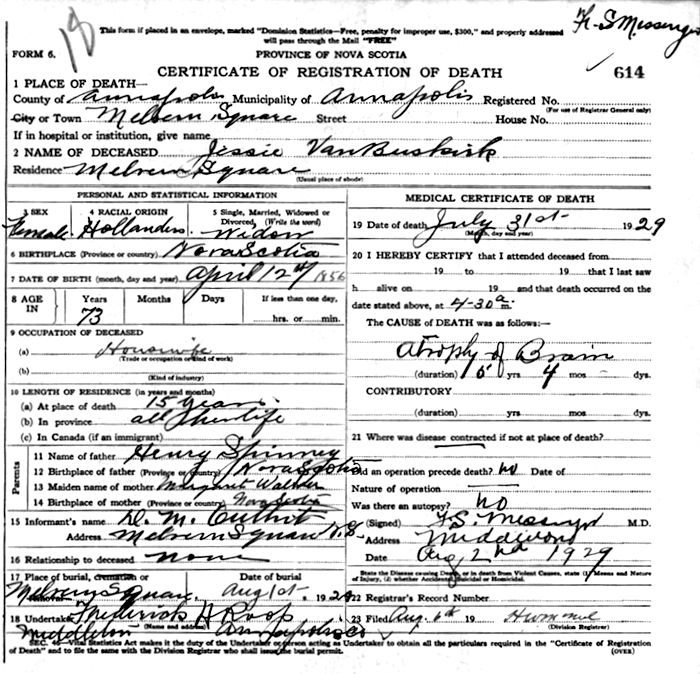 18
This form if placed in an envelope, marked "Dominion Statistics—Free, penalty for improper use, $300," and properly addressed
will pass through the Mail "FREE"
F. S Messenger
FORM 6.
PROVINCE OF NOVA SCOTIA
CERTIFICATE OF REGISTRATION OF DEATH
614
1 PLACE OF DEATH—
County of Annapolis Municipality of Annapolis Registered No.
(For use of Registrar General only)
City or Town Melvern Square Street House No.
If in hospital or institution, give name
2 NAME OF DECEASED Jessie VanBuskirk
Residence Melvern Square
(Usual place of abode)
PERSONAL AND STATISTICAL INFORMATION
3 SEX
Female
4 RACIAL ORIGIN
Hollanders
5 Single, Married, Widowed or Divorced, (Write the word)
Widow
6 BIRTHPLACE (Province or country) Nova Scotia
7 DATE OF BIRTH (month, day and year) April 12th 1856
8 AGE IN Years Months Days If less than one day,
73 hrs. or min.
9 OCCUPATION OF DECEASED
(a) Housewife
(Trade or occupation or kind of work)
(b)
(Kind of industry)
10 LENGTH OF RESIDENCE (in years and months)
(a) At place of death 15 years
(b) In province all her life
(c) In Canada (if an immigrant)
Parents
11 Name of father Henry Spinney
12 Birthplace of father (Province or country) Nova Scotia
13 Maiden name of mother Margaret Walker
14 Birthplace of mother (Province or country) Nova Scotia
15 Informant's name D. M.
Address Melvern Square N.S.
16 Relationship to deceased none
17 Place of burial, cremation or Date of burial
Melvern Square Aug 1st 1929
18 Undertaker Frederick A Roop
(Name and address)
Middleton Annapolis Co
MEDICAL CERTIFICATE OF DEATH
19 Date of death July 31st 1929
(Month, day and year)
20 I HEREBY CERTIFY that I attended deceased from
19 to 19 that I last saw
h alive on 19 and that death occurred on
date stated above, at 4-30 a m.
The CAUSE of DEATH was as follows:—
Atrophy of Brain
(duration) yrs 4 mos dys.
CONTRIBUTORY
(duration) yrs mos dys.
21 Where was disease contracted if not at place of death?
Did an operation precede death? no Date of
Nature of operation
Was there an autopsy? no
(Signed) F.S. Messenger M.D.
Address Middleton
Date Aug 2nd 1929
State the Disease causing Death, or in death from Violent Causes, state (1) Means and Nature
of Injury, (2) whether Accidental, Suicidal or Homicidal.
22 Registrar's Record Number
23 Filed Aug. 6th 19
(Division Registrar)
SEC. 46—Vital Statistics Act makes it the duty of the Undertaker or person acting as Undertaker to obtain all the particulars required in the "Certificate of Registration
of Death" and to file the same with the Division Registrar who shall issue the burial permit.
(OVER)